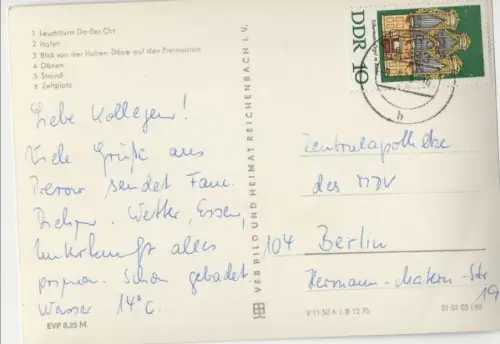 1 Leuchtturm Darßer Ort
2 Hafen
3 Blick von der Hohen Düne auf den Prerowstrom
4 Dünen
5 Strand
6 Zeltplatz
Liebe Kollegen!
Viele Grüße aus
Prerow sendet Fam.
Wetter, Essen,
Unterkunft alles
prima. Schon gebadet.
Wasser 14°C.
EVP 0,25 M
VEB BILD UND HEIMAT REICHENBACH I. V.
DDR 10
Zentralapotheke
des MDV
104 Berlin
Hermann-Matern-Str
19
V 11 50 A 1 B 12 75